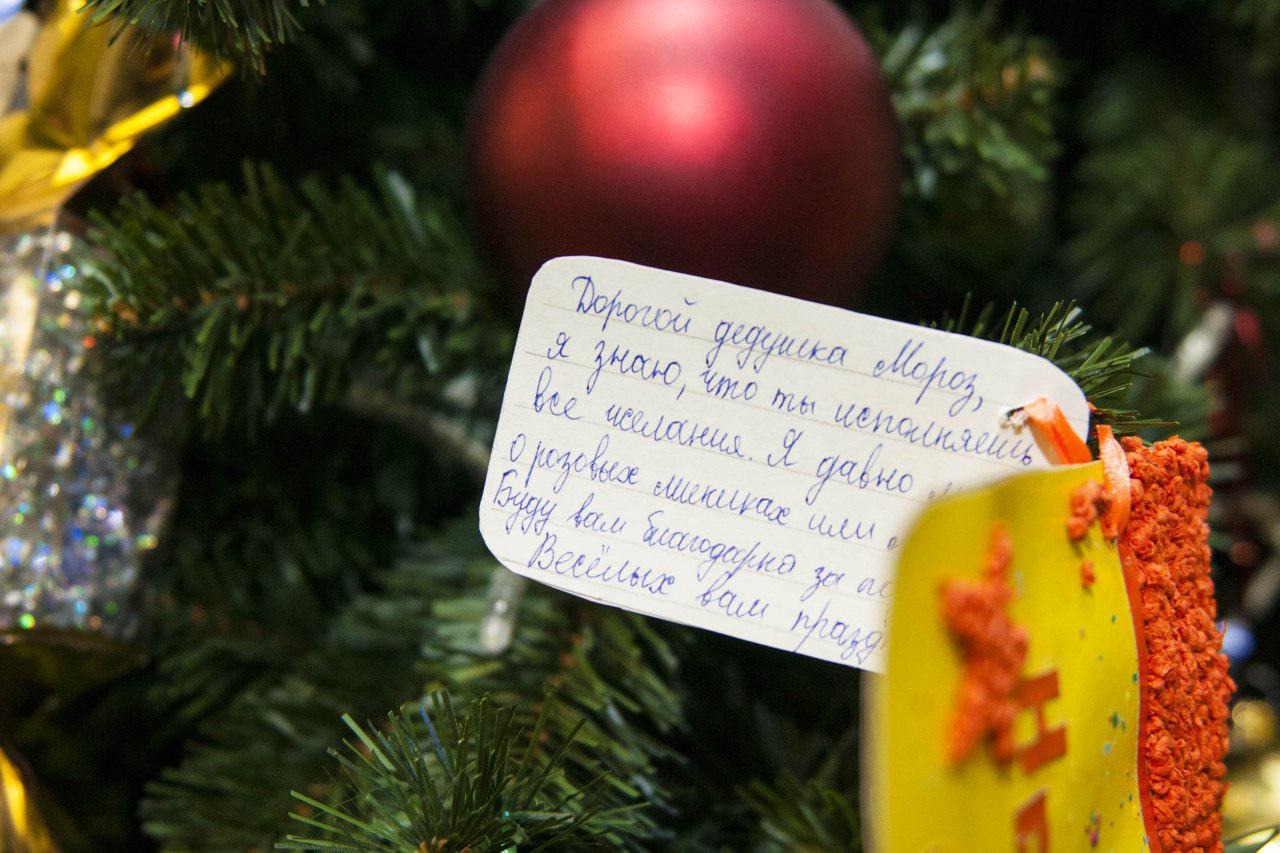 Дорогой дедушка Мороз,
я знаю, что ты исполняешь
все желания. Я давно
о розовых мишках или
Буду вам благодарна за
Весёлых вам празд
Н